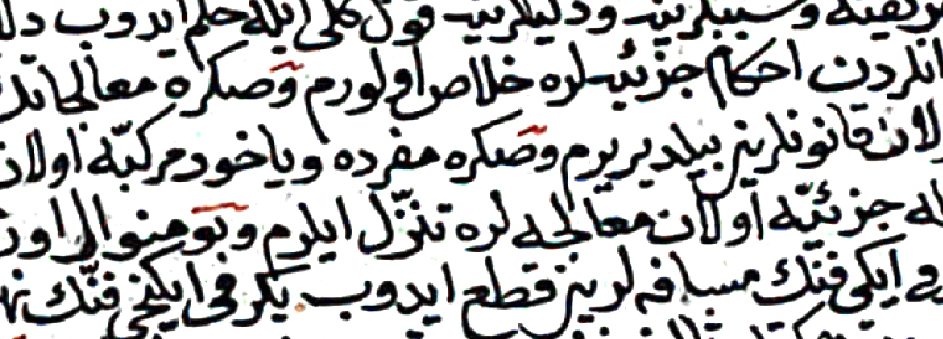 وسببلرينه ودليلرينه قول كلى ايله حكم ايدوب
انلردن احكام جزئيه لره خلاص اولورم وصكره معالجاتك
اولان قانونلرين بيلديريرم وصكره مفرده وياخود مركبّه اولان
جزئيّه اولان معالجه لره تنزّل ايلرم وبو منوال اوزره
ايكى فنّك مسافه لرين قطع ايدوب يكرمى ايكنجى فنّك